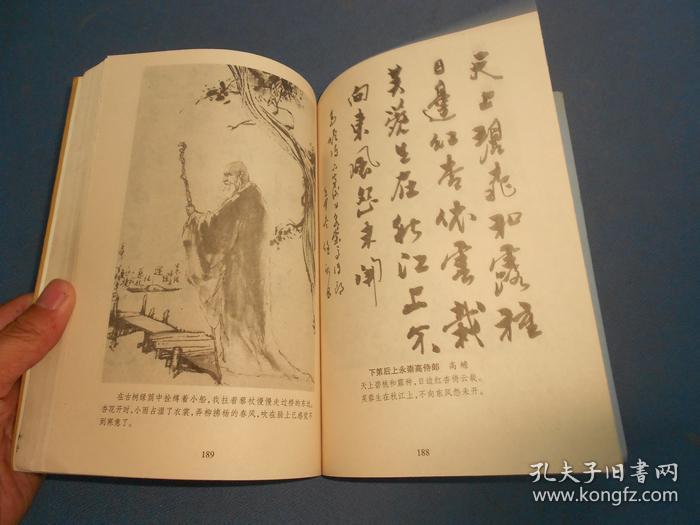 天上碧桃和露種
日邊紅杏倚雲栽
芙蓉生在秋江上不
向東風怨未開
下第后上永崇高侍郎 高蟾
天上碧桃和露种，日边红杏倚云栽。
芙蓉生在秋江上，不向东风怨未开。
188
在古树绿荫中拴缚着小船，我拄着藜杖慢慢走过桥的东边。
杏花开时，小雨占湿了衣裳，弄柳拂杨的春风，吹在脸上已感觉不
到寒意了。
189
孔夫子旧书网
www.kongfz.com